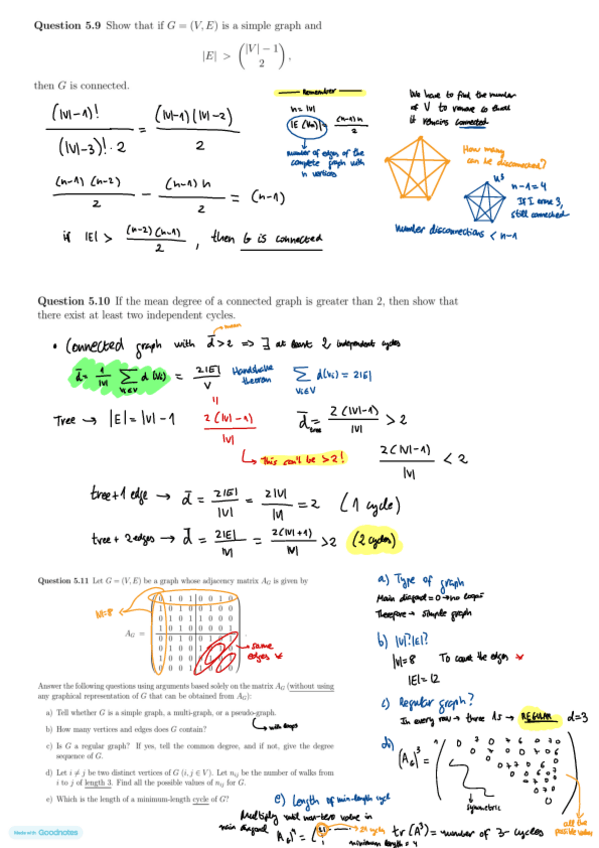 Question 5.9 Show that if G = (V, E) is a simple graph and
|E| > (|V| − 1
2),
then G is connected.
Remember
n = |V|
|E(Kn)| = (n-1)n / 2
number of edges of the complete graph with n vertices
We have to find the number
of V to remove so that
it remains connected
How many
can be disconnected?
K5
n-1=4
If I erase 3,
still connected
Number disconnections < n-1
(|V|-1)! / (|V|-3)! · 2 = (|V|-1)(|V|-2) / 2
(n-1)(n-2) / 2 − (n-1)n / 2 = (n-1)
if |E| > (n-2)(n-1) / 2, then G is connected
Question 5.10 If the mean degree of a connected graph is greater than 2, then show that
there exist at least two independent cycles.
mean
• Connected graph with d̄>2 => ∃ at least 2 independent cycles
d̄ = 1/|V| ∑ Vi∈V d(Vi) = 2|E| / V
Handshake
theorem
∑ Vi∈V d(Vi) = 2|E|
Tree → |E| = |V| - 1
2(|V|-1) / |V|
d̄ tree = 2(|V|-1) / |V| > 2
This can't be >2!
2(|V|-1) / |V| < 2
tree+1 edge → d̄ = 2|E| / |V| = 2|V| / |V| = 2 (1 cycle)
tree + 2 edges → d̄ = 2|E| / |V| = 2(|V|+1) / |V| > 2 (2 cycles)
Question 5.11 Let G = (V, E) be a graph whose adjacency matrix AG is given by
|V|=8
AG =
0 1 0 1 0 0 1 0
1 0 1 0 0 1 0 0
0 1 0 1 1 0 0 0
1 0 1 0 0 0 0 1
same
edges *
Answer the following questions using arguments based solely on the matrix AG (without using
any graphical representation of G that can be obtained from AG):
a) Tell whether G is a simple graph, a multi-graph, or a pseudo-graph.
with loops
b) How many vertices and edges does G contain?
c) Is G a regular graph? If yes, tell the common degree, and if not, give the degree
sequence of G.
d) Let i ≠ j be two distinct vertices of G (i, j ∈ V). Let nij be the number of walks from
i to j of length 3. Find all the possible values of nij for G.
e) Which is the length of a minimum-length cycle of G?
a) Type of graph
Main diagonal = 0 → no loops
Therefore → simple graph
b) |V|? |E|?
|V|=8 To count the edges *
|E|=12
c) Regular graph?
In every row → three 1s → REGULAR d=3
d)
(AG)³ =
Symmetric
all the
possible values
e) Length of min-length cycle
Multiply until non-zero value in
main diagonal
tr(A³) = number of 3-cycles
minimum length = 4
Made with Goodnotes